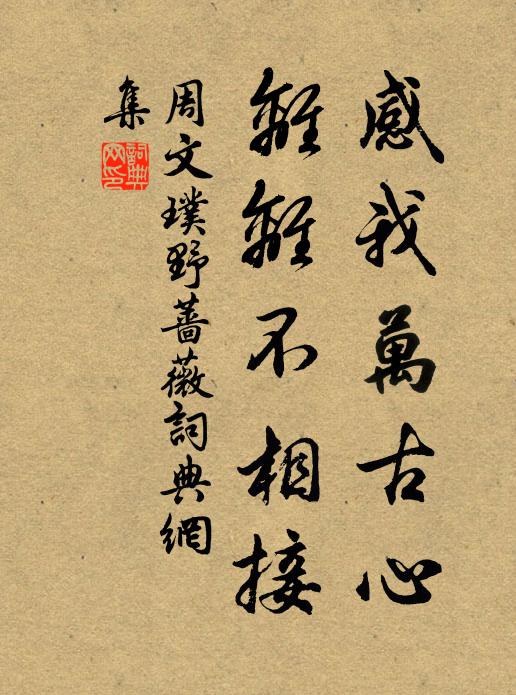 感我萬古心
離離不相接
周文璞野薔薇詞典網
集
詞典網印